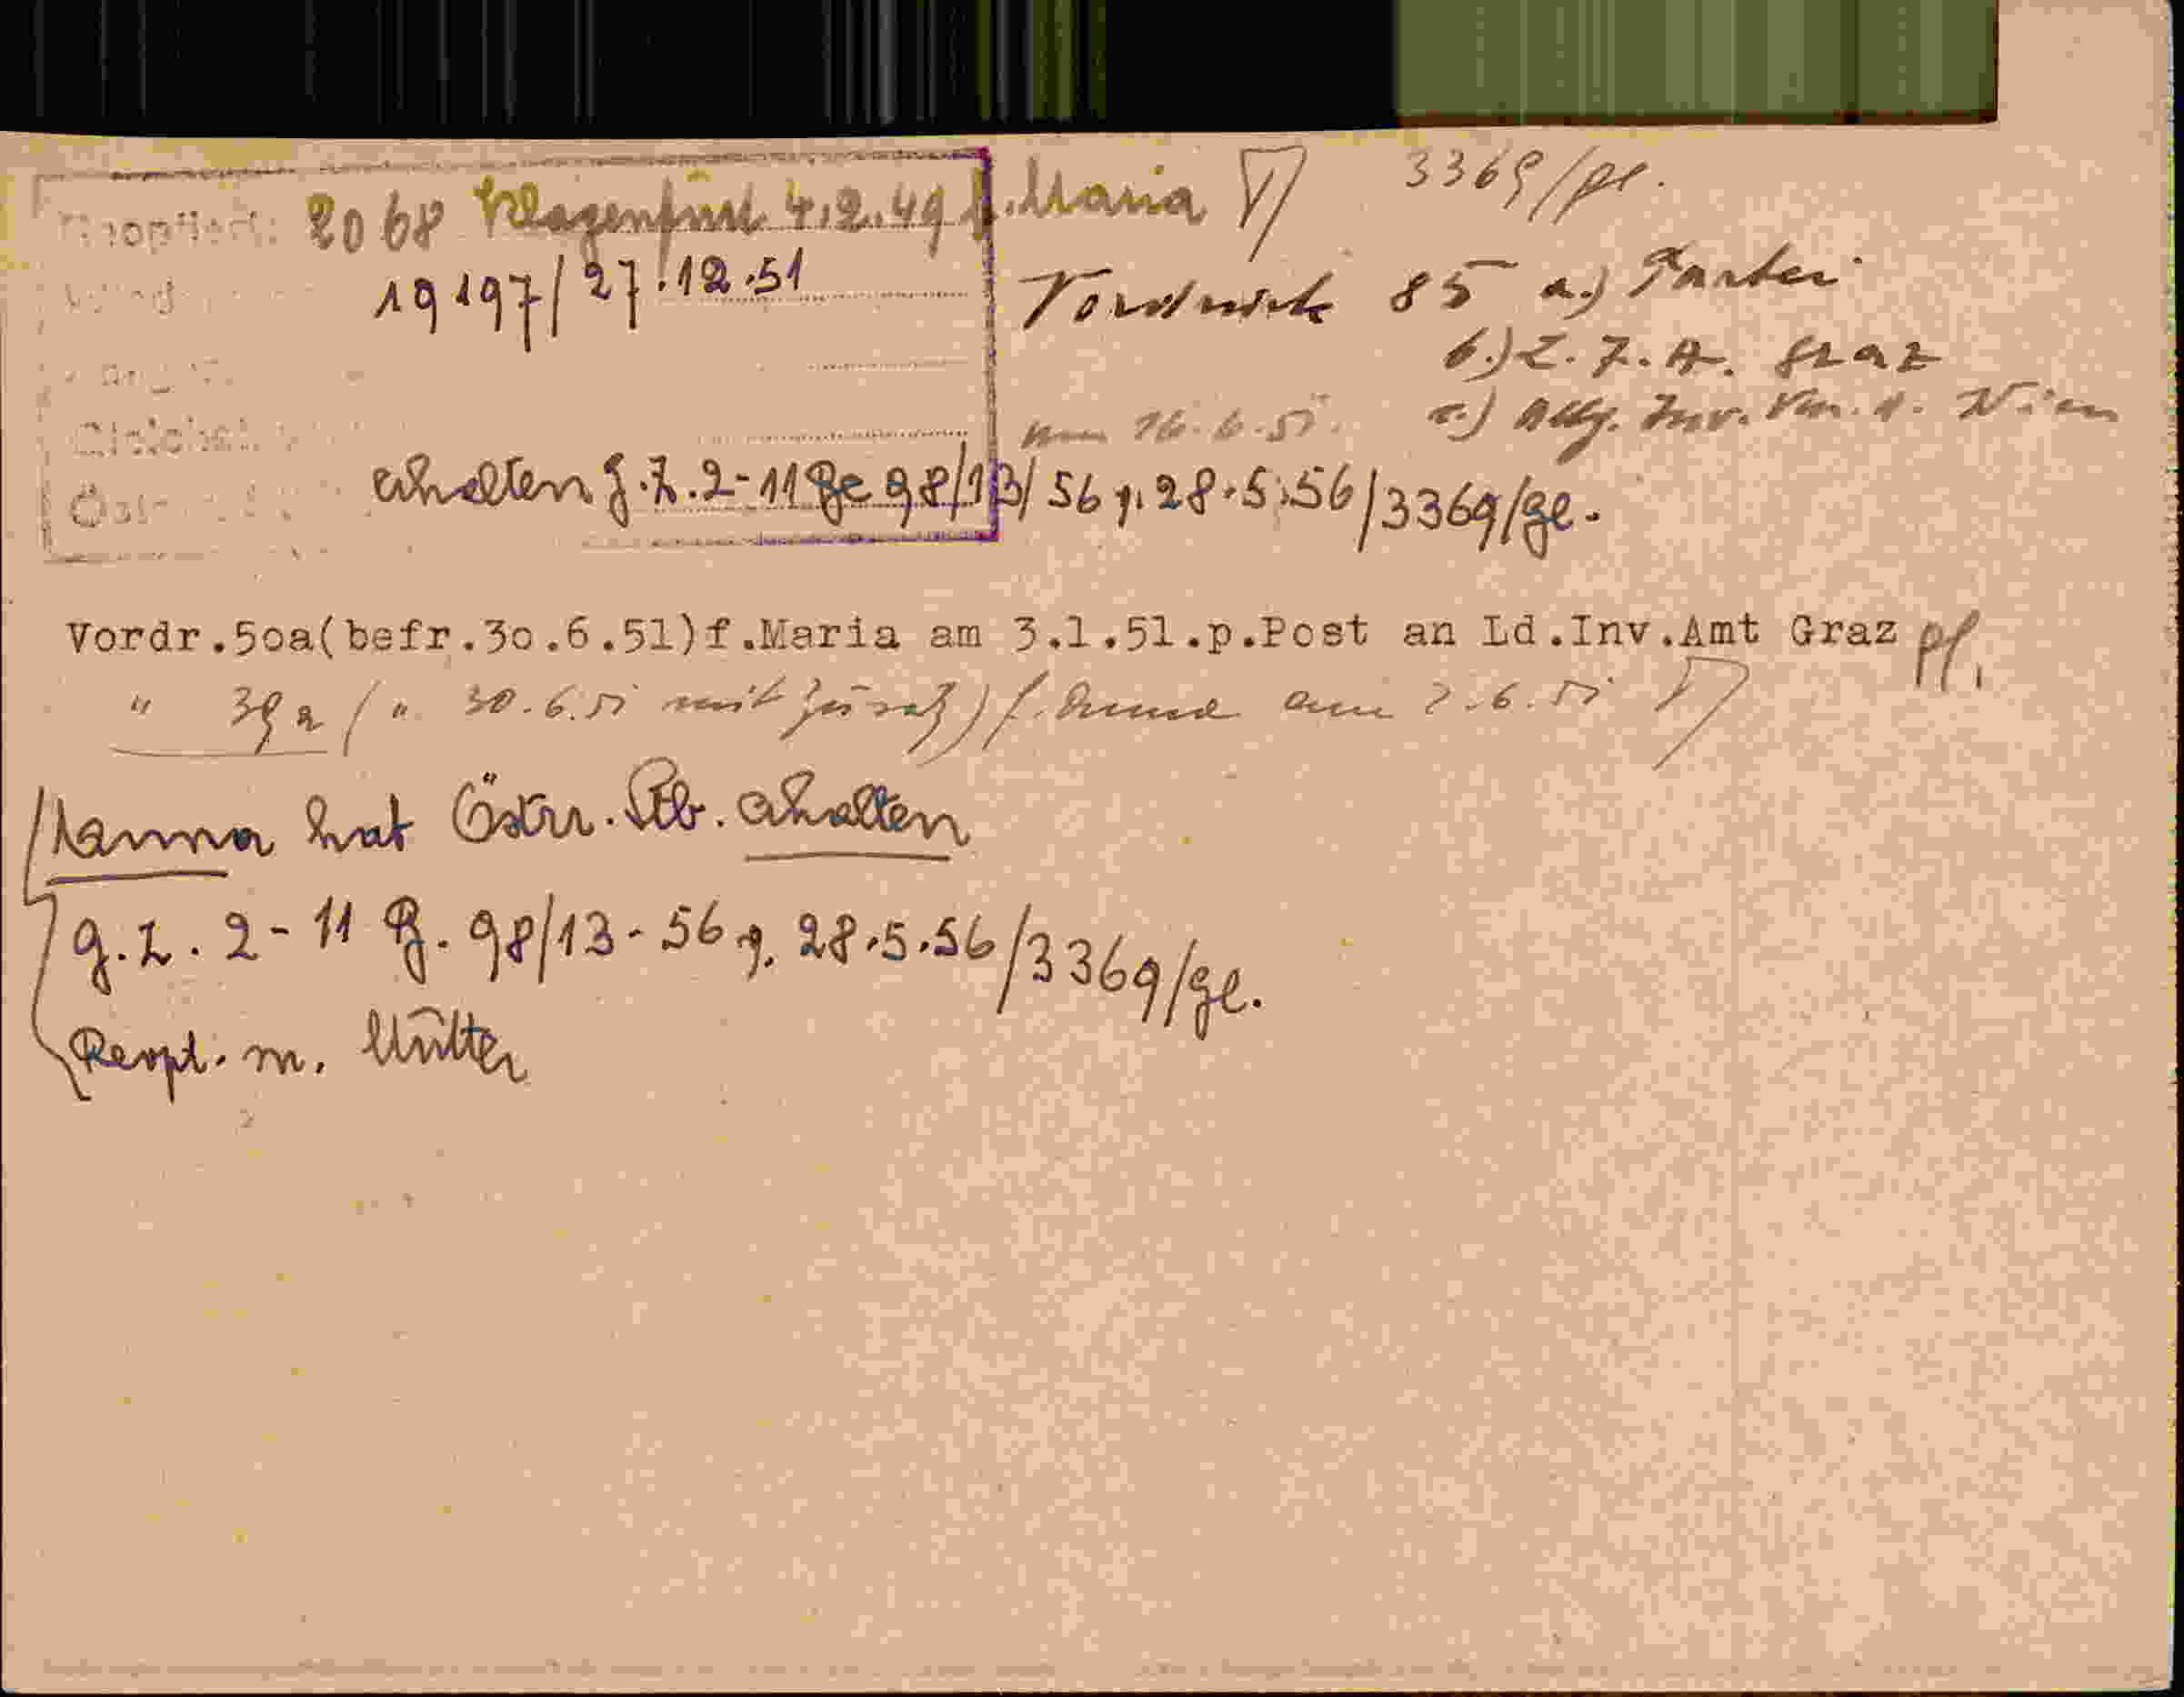 Reoptiert: 2068 Klagenfurt 4.2.49 f. Maria 3369/pl.
19197/27.12.51
Vordruck 85 a.) Partei
b.) L.I.A. Graz
am 16.6.51. c.) Allg. Inv. Wien
erhalten g.Z. 2-11 Ge 98/13/56 v. 28.5.56/3369/ge.
Vordr.50a(befr.30.6.51)f.Maria am 3.1.51.p.Post an Ld.Inv.Amt Graz pf.
" 39a (" 30.6.51 mit Zusatz) f. am 2.6.51
hat Österr. Stb. erhalten
g.Z. 2-11 G. 98/13-56 v. 28.5.56/3369/ge.
Reopt. m. Mutter